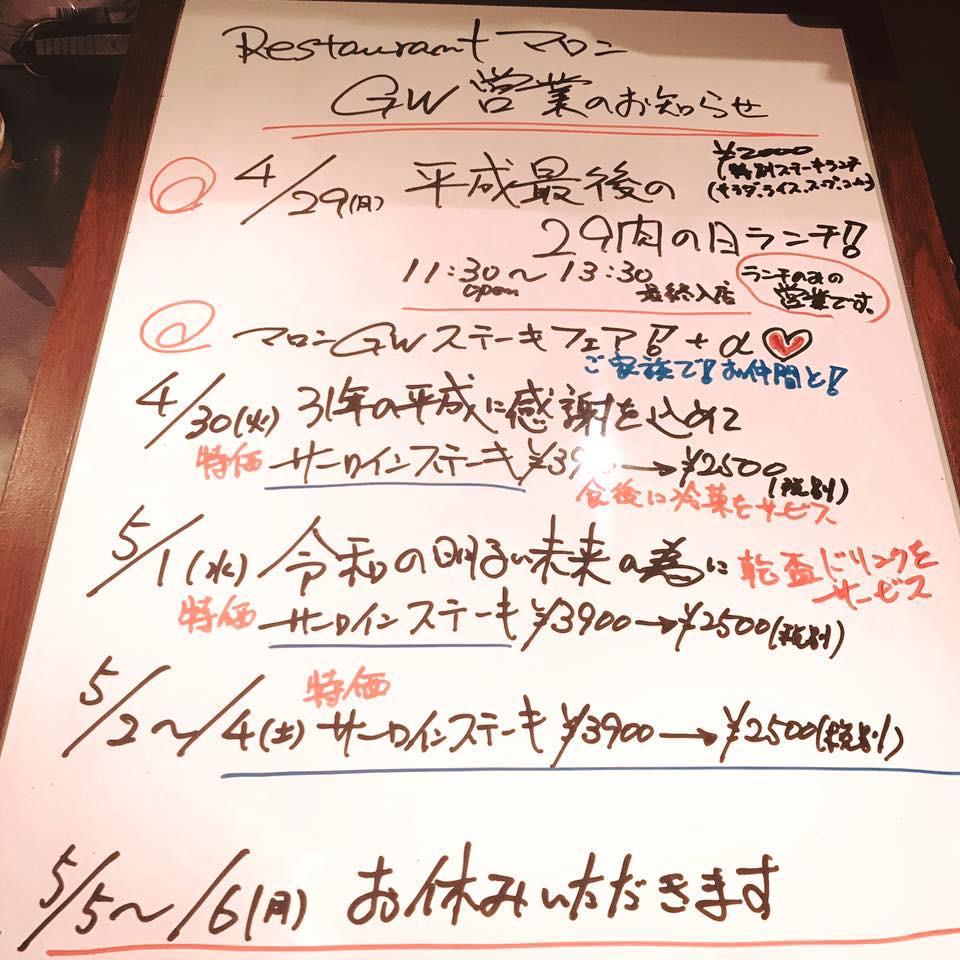 Restaurant マロン
GW 営業のお知らせ
¥2000
(特別ステーキランチ
(サラダ、ライス、スープ、コーヒー)
4/29(月) 平成最後の
29肉の日ランチ!!
11:30〜13:30
open 最終入店
ランチのみの
営業です。
マロンGWステーキフェア!! +α
ご家族で! お仲間と!
4/30(火) 31年の平成に感謝を込めて
特価 サーロインステーキ ¥3900→¥2500(税別)
食後に冷菓をサービス
5/1(水) 令和の明るい未来の為に 乾盃ドリンクを
サービス
特価 サーロインステーキ ¥3900→¥2500(税別)
特価
5/2〜/4(土) サーロインステーキ ¥3900→¥2500(税別)
5/5〜/6(月) お休みいただきます